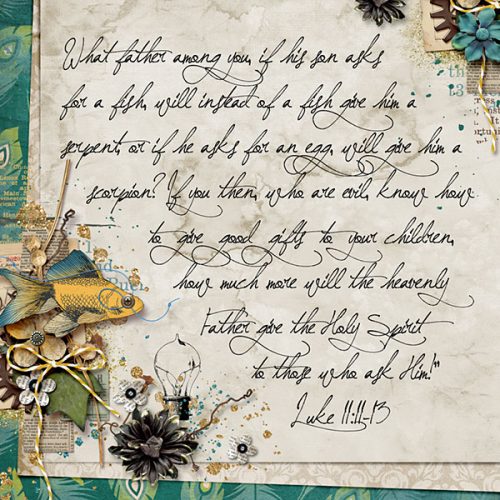 What father among you, if his son asks
for a fish, will instead of a fish give him a
serpent, or if he asks for an egg, will give him a
scorpion? If you then, who are evil, know how
to give good gifts to your children,
how much more will the heavenly
Father give the Holy Spirit
to those who ask Him!"
Luke 11:11-13